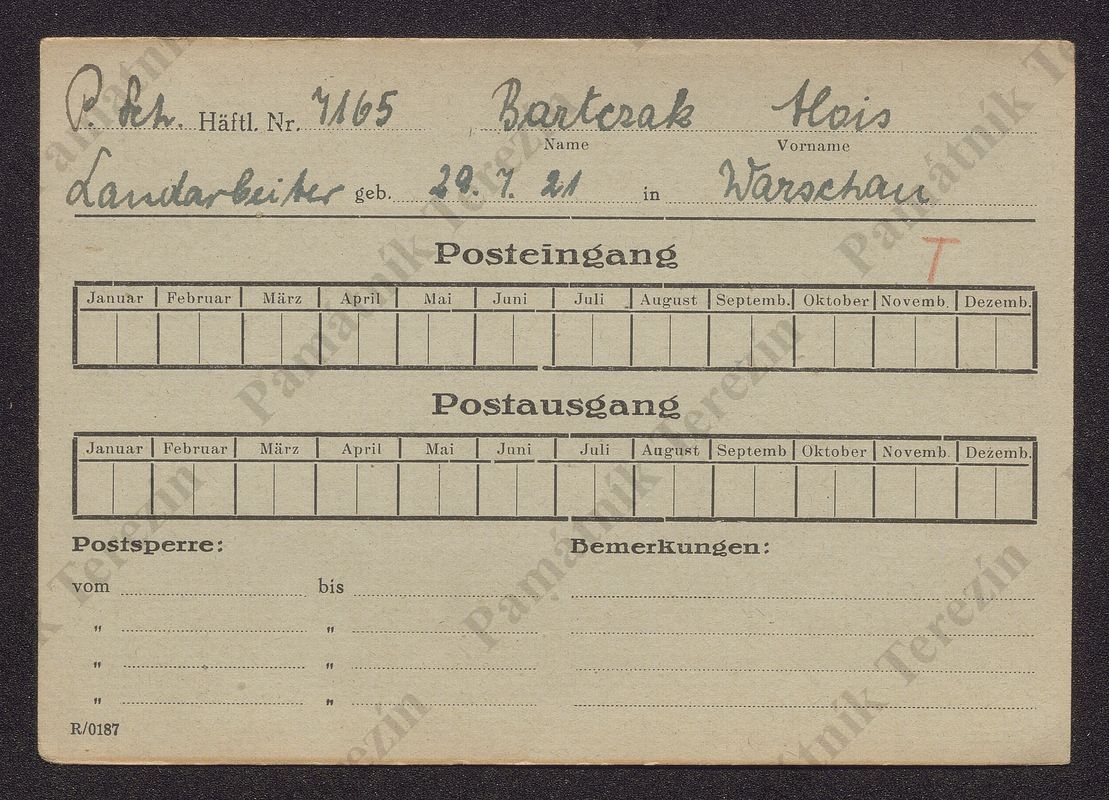 P. Sch. Häftl. Nr. 7165 Bartczak Alois
Name Vorname
Landarbeiter geb. 29. 7. 21 in Warschau
Posteingang
T
Januar Februar März April Mai Juni Juli August Septemb. Oktober Novemb. Dezemb.
Postausgang
Januar Februar März April Mai Juni Juli August Septemb Oktober Novemb. Dezemb.
Postsperre: Bemerkungen:
vom bis
" "
" "
" "
R/0187
Památník Terezín